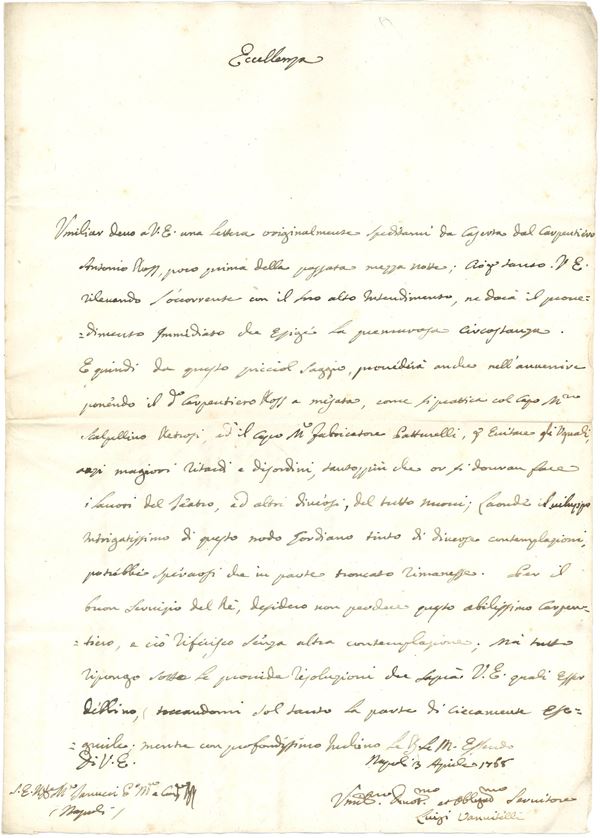 Eccellenza
Umiliar devo a V. E. una lettera originalmente speditami da Caserta dal Carpentiero
Antonio Ross, poco prima della passata mezza notte; Acciò tanto V. E.
rilevendo l'occorrente con il suo alto Intendimento, ne docà il prove=
=dimento Immediato che Esige la premurosa circostanza.
E quindi da questo picciol saggio, provederà anche nell'avvenire
ponendo il do Carpentiero Ross a mesata, come si prattica col Capo Mro
Scalpellino Petrosi, ed il Capo Mo fabricatore Patturelli, p Evitare gli Uguali,
anzi magiori ritardi e disordini, tantoppiù che or si dovran fare
i lavori del Teatro, ed altri diversi, del tutto nuovi; Laonde il sviluppo
Intrigatissimo di questo nodo Gordiano tinto di diverse contemplazioni,
potrebbe sperarsi che in parte troncato rimanesse. Per il
buon Servizio del Rè, desidero non perdere questo abilissimo Carpen=
=tiero, e ciò riferisco senza altra contemplazione; Mà tutto
ripongo sotto le provide risoluzioni che saprà V. E. quali esser
debbino, toccandomi sol tanto la parte di ciecamente Ese=
=guirle; mentre con profondissimo Inchino Le B. Le M. Essendo
Di V. E.
Napoli 3 Aprile 1766
S. E. Mo Tanucci
(Napoli)
Umilmo Devotmo et Obligmo Servitore
Luigi Vanvitelli